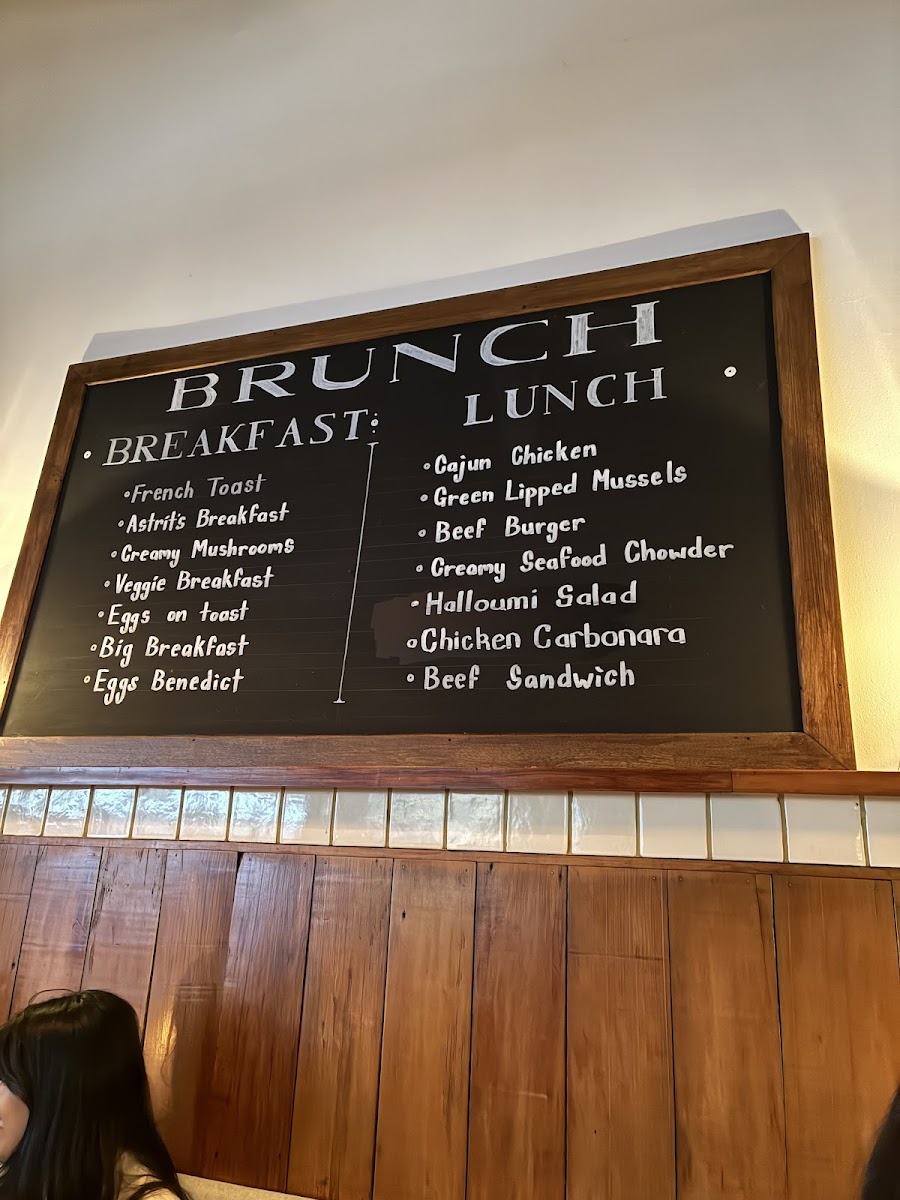 BRUNCH
BREAKFAST:
French Toast
Astrit's Breakfast
Creamy Mushrooms
Veggie Breakfast
Eggs on toast
Big Breakfast
Eggs Benedict
LUNCH
Cajun Chicken
Green Lipped Mussels
Beef Burger
Creamy Seafood Chowder
Halloumi Salad
Chicken Carbonara
Beef Sandwich